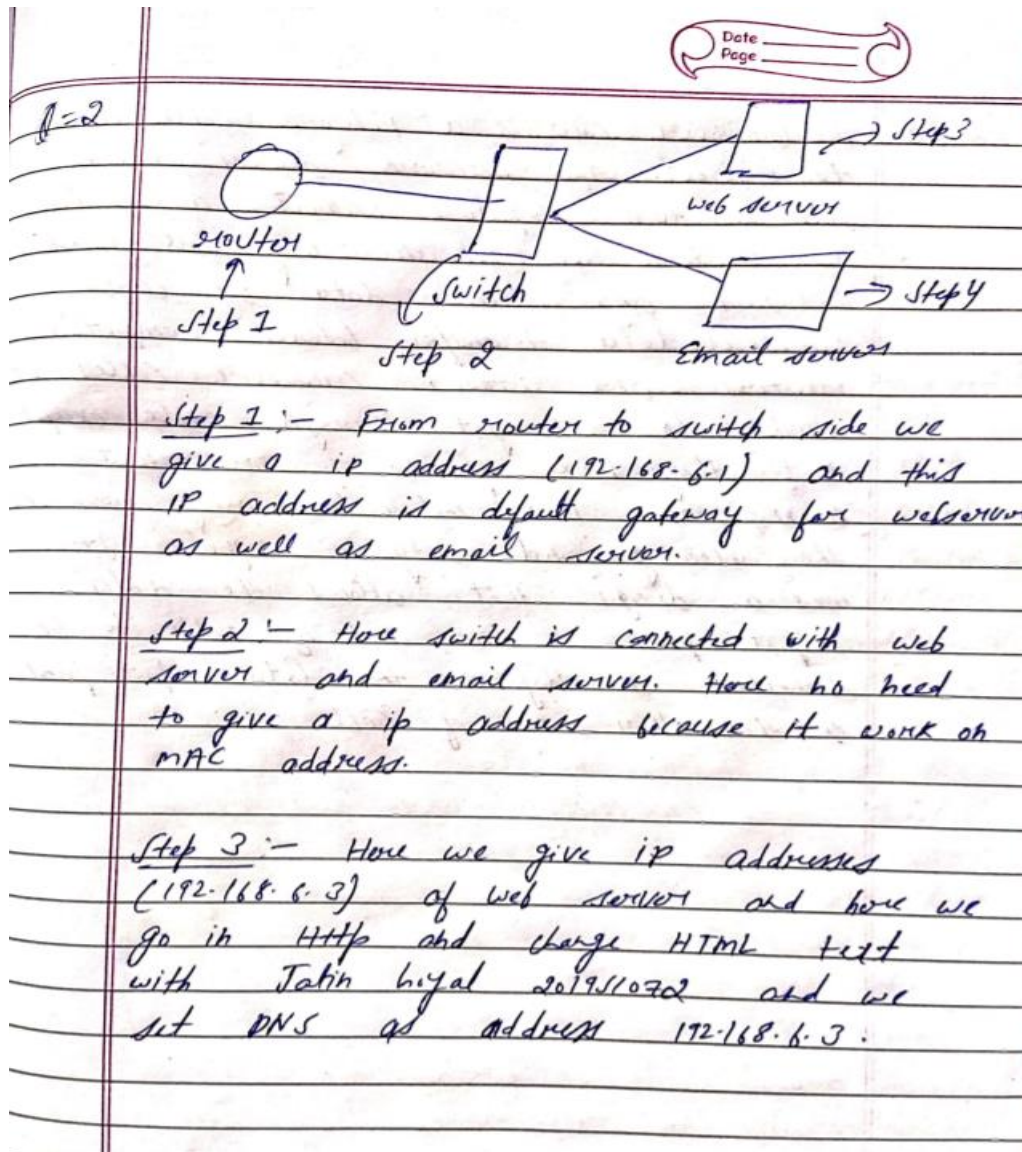 Date
Page
=2
Step 3
web server
router
Switch
Step 4
Step 1
Step 2
Email server
Step 1 :- From router to switch side we
give a ip address (192.168.6.1) and this
IP address is default gateway for webserver
as well as email server.
Step 2 :- Here switch is connected with web
server and email server. Here no need
to give a ip address because it work on
MAC address.
Step 3 :- Here we give ip addresses
(192.168.6.3) of web server and here we
go in Http and change HTML text
with Jatin and we
set DNS as address 192.168.6.3.